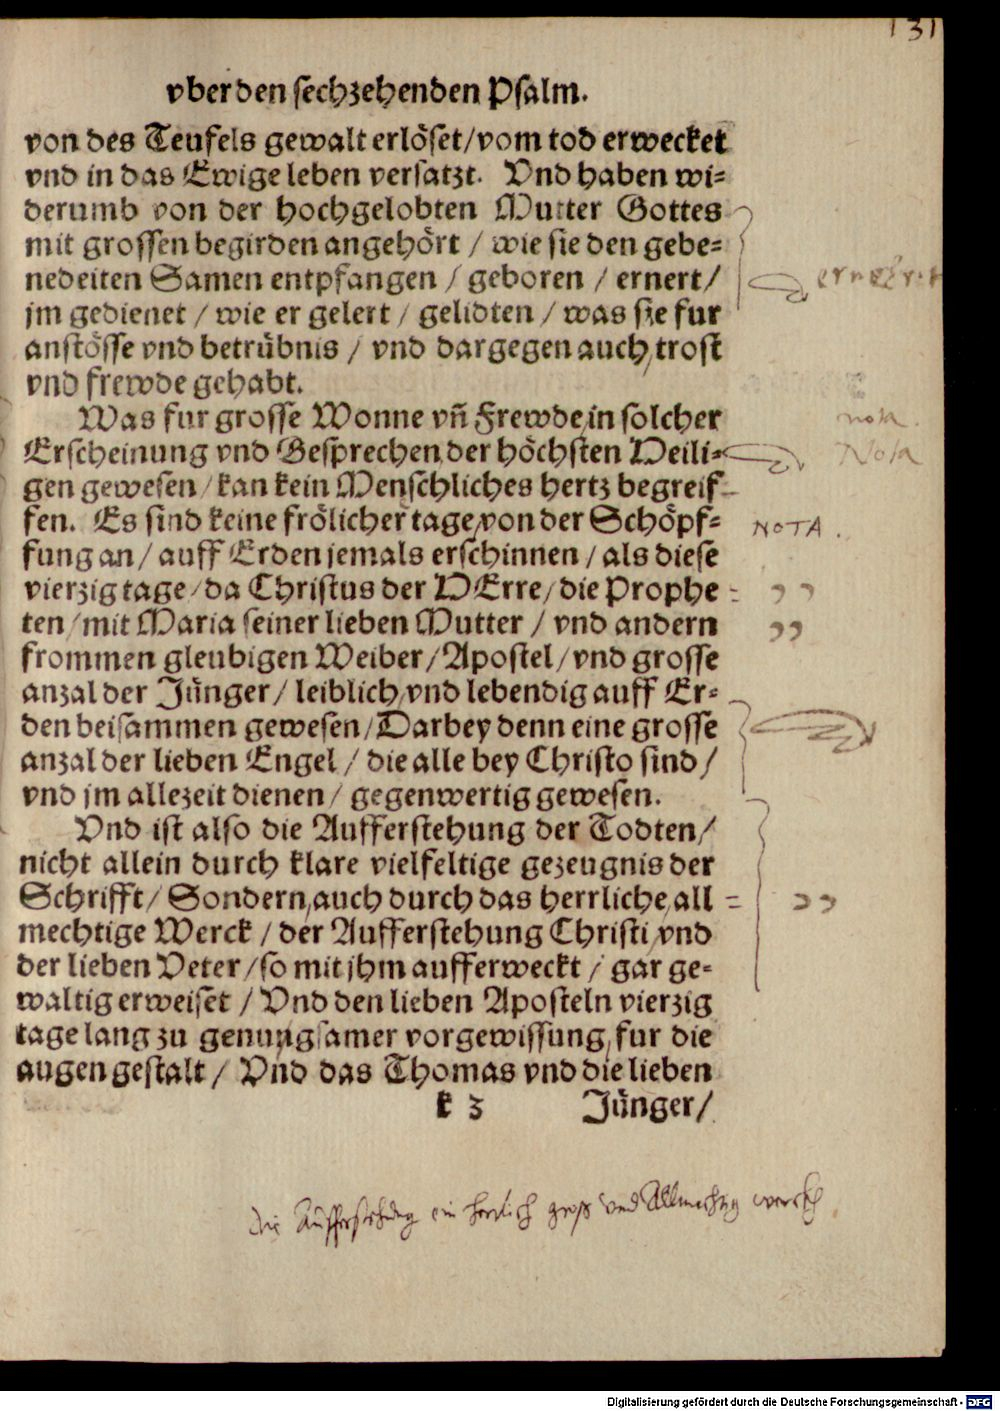 131
vber den sechzehenden Psalm.
von des Teufels gewalt erlöset/vom tod erwecket
vnd in das Ewige leben versatzt. Vnd haben wi-
derumb von der hochgelobten Mutter Gottes
mit grossen begirden angehört / wie sie den gebe-
nedeiten Samen entpfangen / geboren / ernert/
jm gedienet / wie er gelert / gelidten / was sie fur
anstösse vnd betrübnis / vnd dargegen auch trost
vnd frewde gehabt.
Was fur grosse Wonne vñ Frewde in solcher
nota.
Erscheinung vnd Gesprechen der höchsten Heili-
Nota
gen gewesen / kan kein Menschliches hertz begreif-
fen. Es sind keine frölicher tage von der Schöpf-
NOTA.
fung an / auff Erden jemals erschinnen / als diese
vierzig tage / da Christus der HErre/ die Prophe-
ten / mit Maria seiner lieben Mutter / vnd andern
frommen gleubigen Weiber / Apostel / vnd grosse
anzal der Jünger / leiblich vnd lebendig auff Er-
den beisammen gewesen / Darbey denn eine grosse
anzal der lieben Engel / die alle bey Christo sind /
vnd jm allezeit dienen / gegenwertig gewesen.
Vnd ist also die Aufferstehung der Todten/
nicht allein durch klare vielfeltige gezeugnis der
Schrifft / Sondern auch durch das herrliche all-
mechtige Werck / der Aufferstehung Christi vnd
der lieben Veter / so mit jhm aufferweckt / gar ge-
waltig erweiset / Vnd den lieben Aposteln vierzig
tage lang zu genungsamer vorgewissung fur die
augen gestalt / Vnd das Thomas vnd die lieben
k 3 Jünger/
die Aufferstehung ein herlich groß vnd Allmechtig werckh
Digitalisierung gefördert durch die Deutsche Forschungsgemeinschaft - DFG